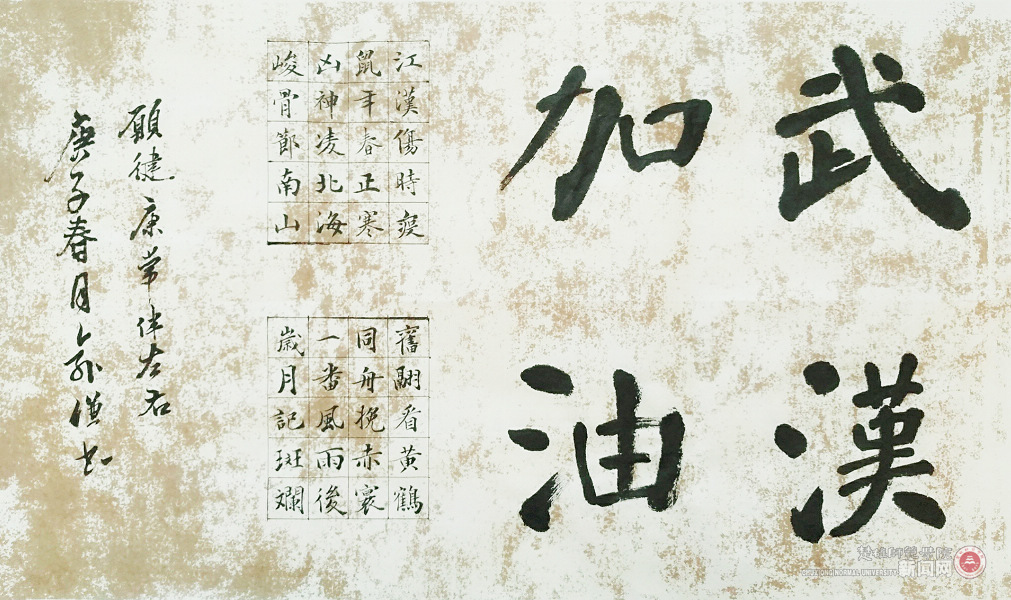 武漢
加油
江漢傷時疫
鼠年春正寒
凶神凌北海
峻骨節南山
奮翮看黃鶴
同舟挽赤寰
一番風雨後
歲月記斑斕
願健康常伴左右
庚子春月 书
楚雄師範學院
CHUXIONG NORMAL UNIVERSITY
新闻网